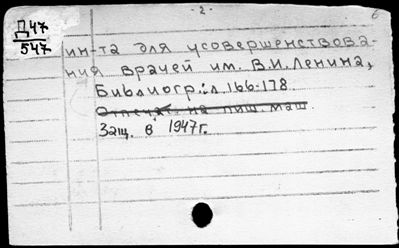 - 2 -
Д47
547
ин-та для усовершенствова-
ния врачей им. В.И. Ленина,
Библиогр.: л. 166-178
Отпечат. на пиш. маш.
Защ. в 1947 г.